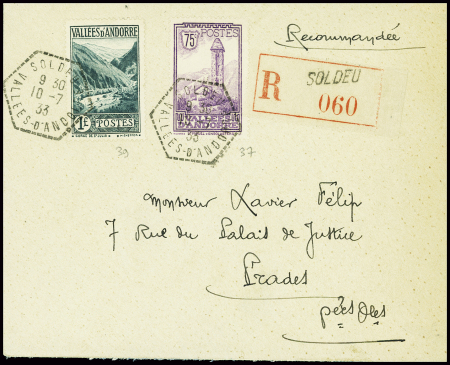 Recommandée
VALLÉES D'ANDORRE
1F POSTES
75c POSTES
VALLÉES
D'ANDORRE
SOLDEU
9 30
10-7
33
VALLÉES-D'ANDORRE
R SOLDEU
060
39
37
Monsieur Xavier Félip
7 Rue du Palais de Justice
Prades